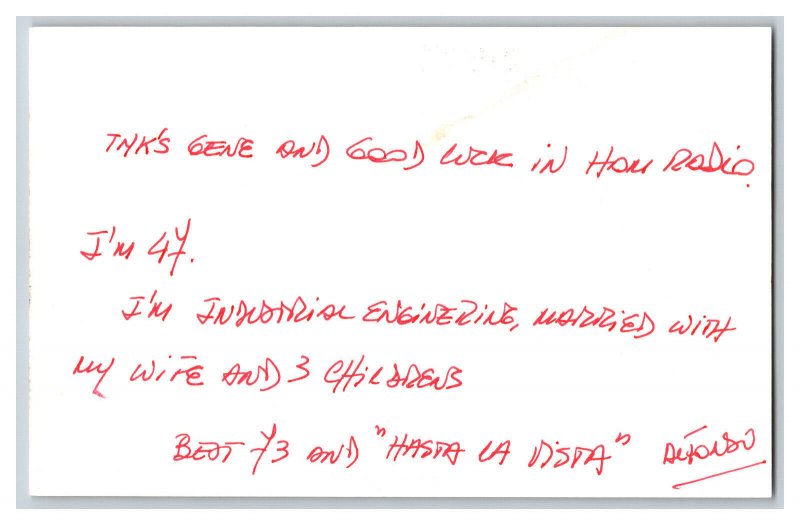 TNK'S GENE AND GOOD LUCK IN HAM RADIO.
I'M 47.
I'M INDUSTRIAL ENGINERING, MARRIED WITH
MY WIFE AND 3 CHILDRENS
BEST 73 AND "HASTA LA VISTA" ALFONSO